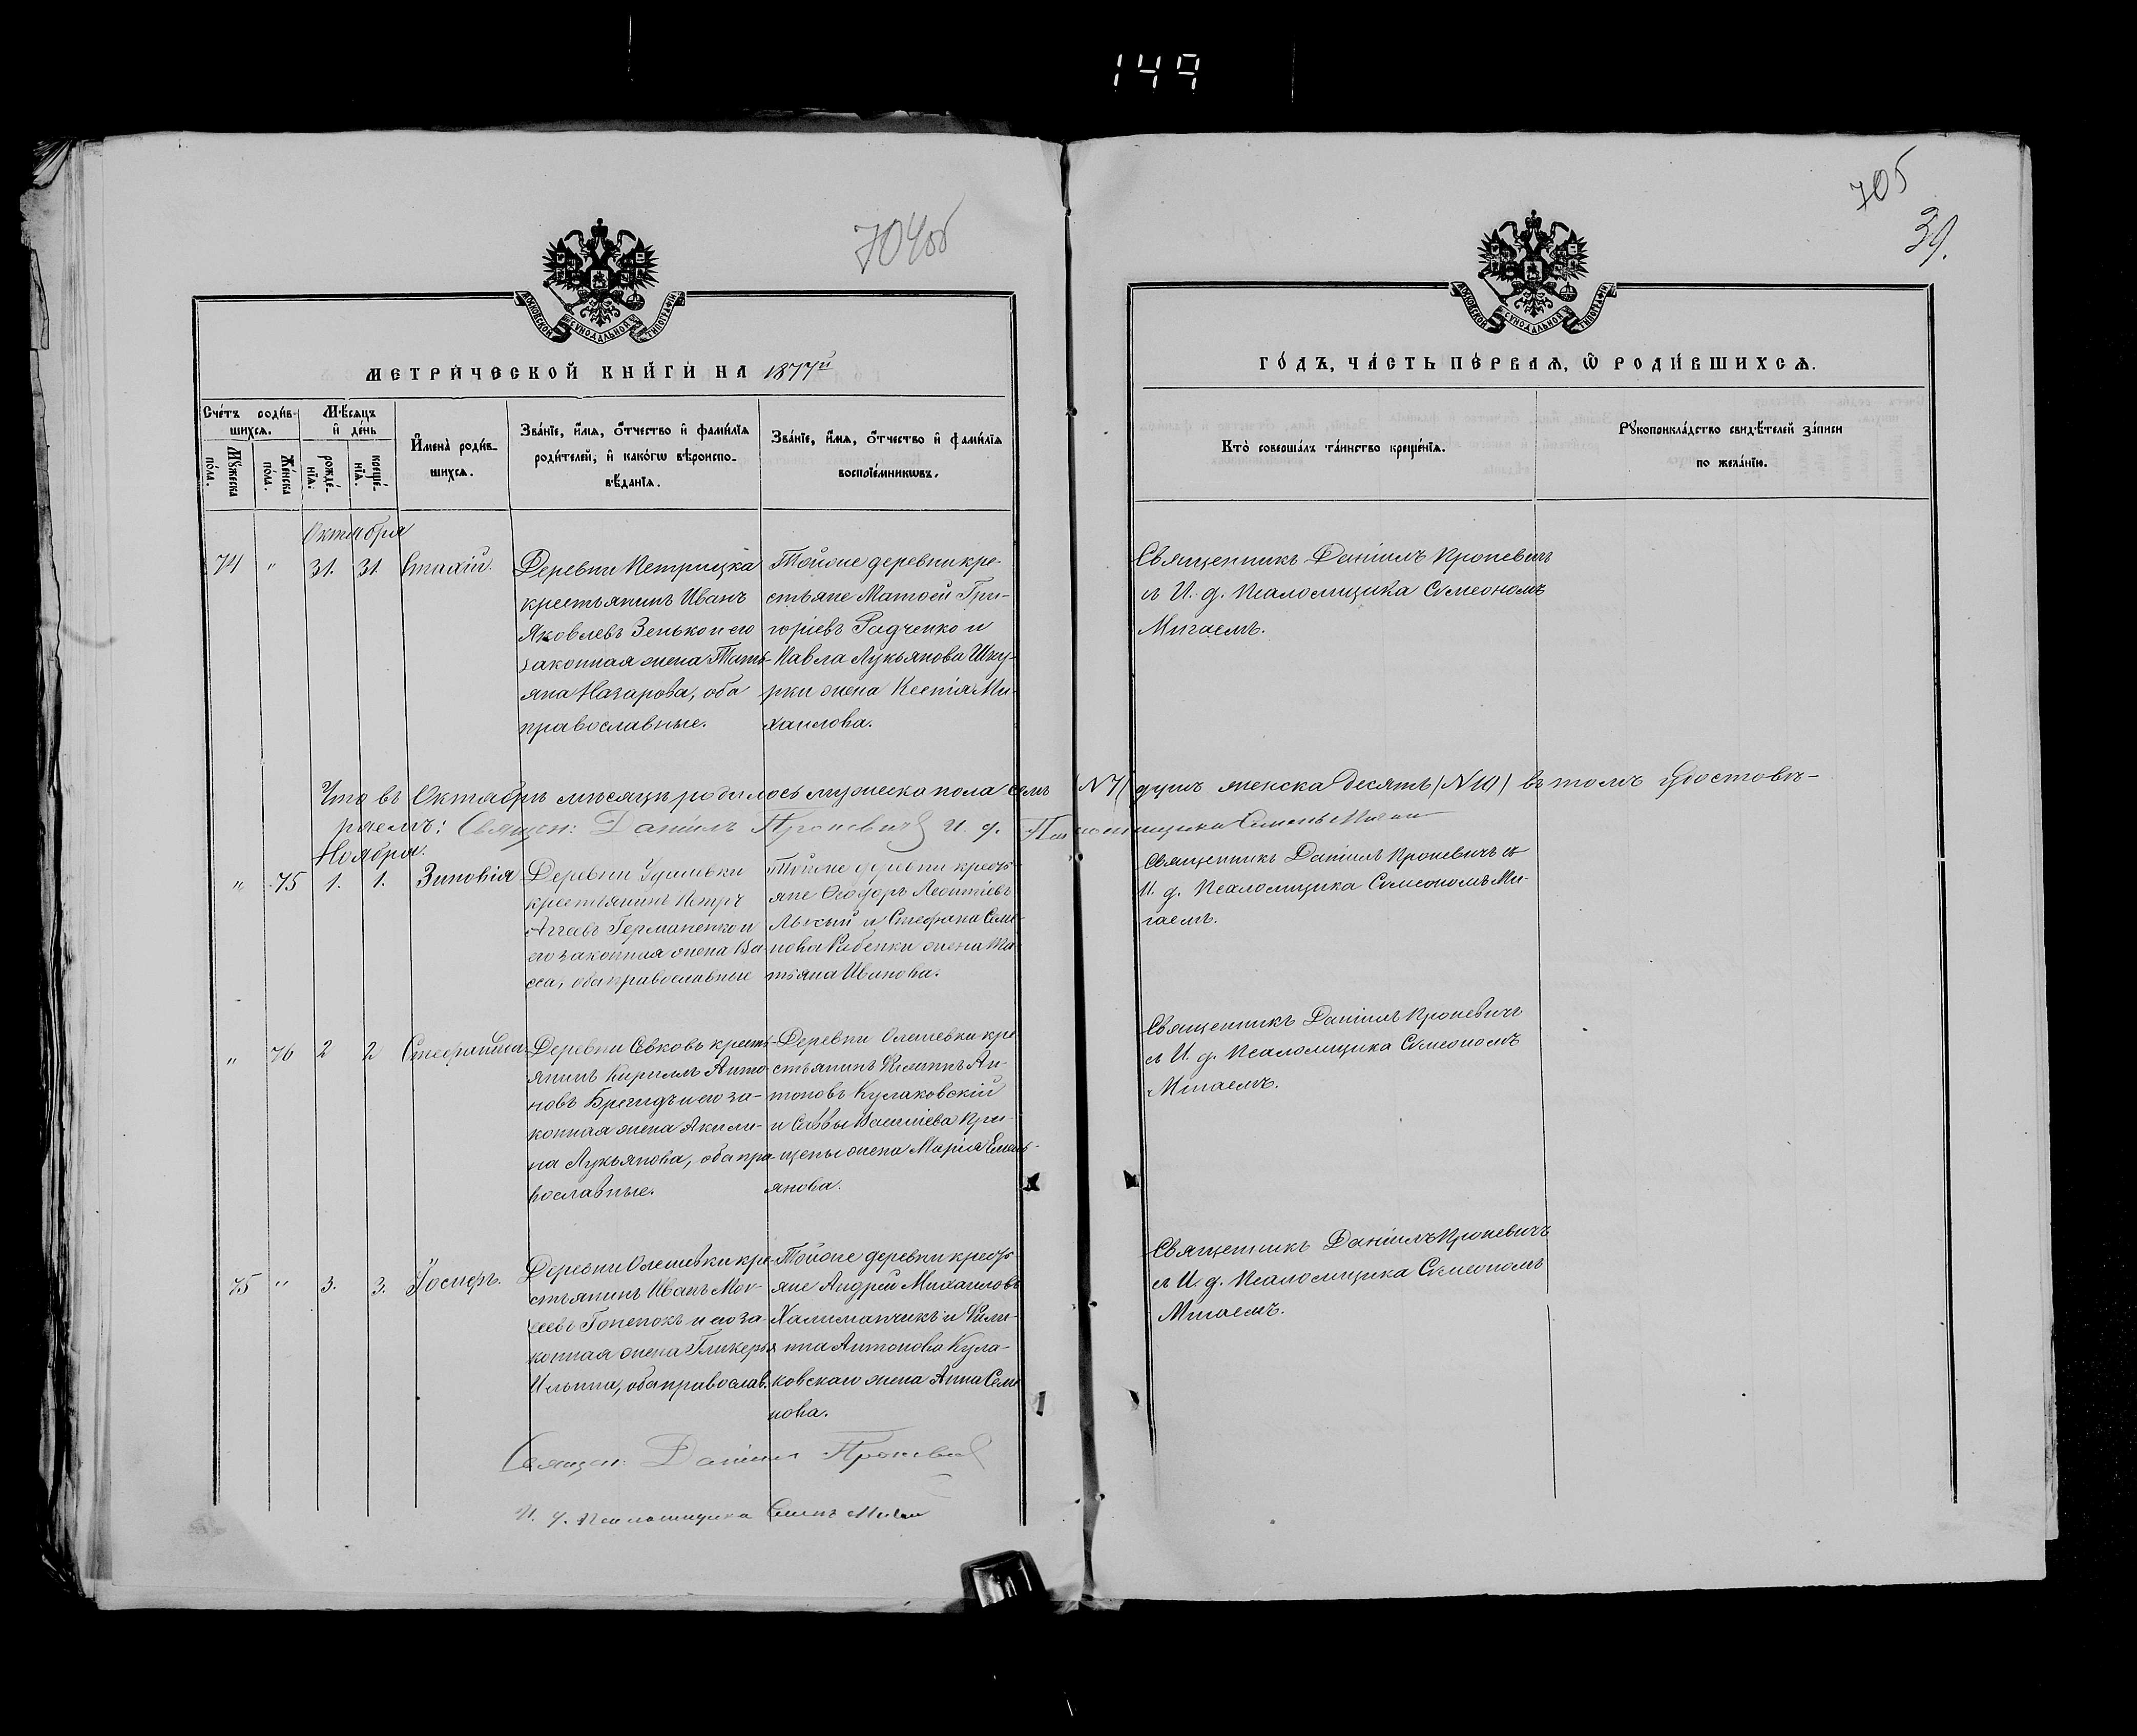 149
704об
705
39.
МОСКОВСКОЙ СѴНОДАЛЬНОЙ ТИПОГРАФІИ
МОСКОВСКОЙ СѴНОДАЛЬНОЙ ТИПОГРАФІИ
МЕТРИ́ЧЕСКОЙ КНИ́ГИ НА 1877й
ГО́ДЪ, ЧА́СТЬ ПЕ́РВАѦ, Ѡ҆ РОДИ́ВШИХСѦ.
Сче́тъ роди́вшихсѧ.
Мꙋ́жеска по́ла.
Же́нска по́ла.
Мѣ́сѧцъ и҆ де́нь
рожде́нїѧ.
креще́нїѧ.
И҆мена̀ роди́вшихсѧ.
Зва́нїе, и҆́мѧ, ѻ҆́тчество и҆ фами́лїѧ
роди́телей, и҆ како́гѡ вѣроиспо-
вѣ́данїѧ.
Зва́нїе, и҆́мѧ, ѻ҆́тчество и҆ фами́лїѧ
воспрїе́мникѡвъ.
Кто̀ соверша́лъ та́инство креще́нїѧ.
Рꙋкоприкла́дство свидѣ́телей за́писи
по жела́нїю.
Октября
74 " 31. 31. Стахій.
Деревни Петрицка
крестьянинъ Иванъ
Яковлевъ Зенько и его
законная жена Тать-
яна Назарова, оба
православные.
Тойже деревни кре-
стьяне Матѳей Гри-
горіевъ Радченко и
Павла Лукьянова Шку-
рки жена Ксенія Ми-
хаилова.
Священникъ Даніилъ Кропевичъ
съ И. д. Псаломщика Сѵмеономъ
Мигаемъ.
Что въ Октябрѣ мѣсяцѣ родилось мужеска пола семь (N7) душъ женска десять (N10) въ томъ удостовѣ-
ряемъ: Священ: Даніилъ Кропевичъ И. д. Псаломщика Семенъ Мигай
Ноября.
" 75 1. 1. Зиновія
Деревни
крестьянинъ Петръ
Германенко и
его законная жена Ва-
сса, оба православные
Тойже деревни кресть-
яне Ѳеодоръ Леонтіевъ
и Стефана Семе-
нова Рабенки жена Та-
тьяна Иванова.
Священникъ Даніилъ Кропевичъ съ
И. д. Псаломщика Сѵмеономъ Ми-
гаемъ.
" 76 2 2 Стефанида
Деревни Евковъ кресть-
янинъ Кириллъ Анто-
новъ и его за-
конная жена Акили-
на Лукьянова, оба пра-
вославные.
Деревни Олешевки кре-
стьянинъ Филиппъ Ан-
тоновъ Кулаковскій
и Саввы Василіева При-
щепы жена Марія Емель-
янова.
Священникъ Даніилъ Кропевичъ
съ И. д. Псаломщика Сѵмеономъ
Мигаемъ.
75 " 3. 3. Іосифъ.
Деревни Олешевки кре-
стьянинъ Иванъ Мои-
сеевъ Гопенокъ и его за-
конная жена Гликерья
Ильина, оба православ.
Тойже деревни кресть-
яне Андрей Михаиловъ
Халиманчикъ и Фили-
ппа Антонова Кула-
ковскаго жена Анна Семе-
нова.
Священникъ Даніилъ Кропевичъ
съ И. д. Псаломщика Сѵмеономъ
Мигаемъ.
Священ: Даніилъ Кропевичъ
И. д. Псаломщика Семенъ Мигай